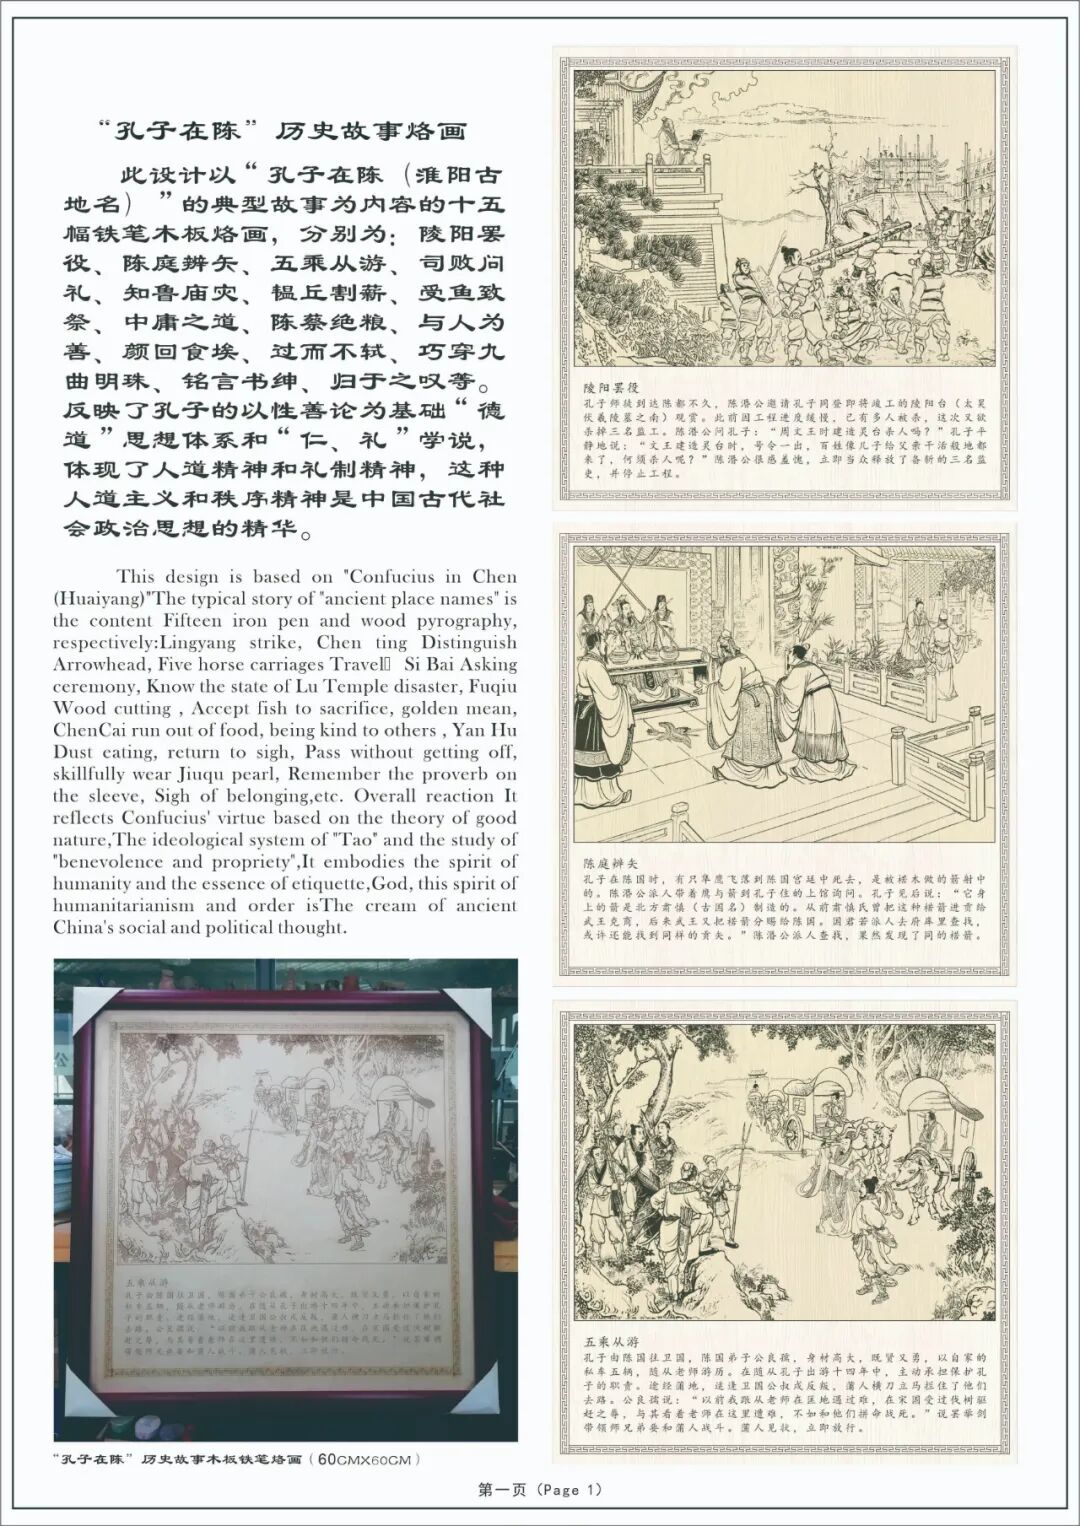 “孔子在陈”历史故事烙画
此设计以“孔子在陈（淮阳古
地名）”的典型故事为内容的十五
幅铁笔木板烙画，分别为：陵阳罢
役、陈庭辨矢、五乘从游、司败问
礼、知鲁庙灾、韫丘割薪、受鱼致
祭、中庸之道、陈蔡绝粮、与人为
善、颜回食埃、过而不轼、巧穿九
曲明珠、铭言书绅、归于之叹等。
反映了孔子的以性善论为基础“德
道”思想体系和“仁、礼”学说，
体现了人道精神和礼制精神，这种
人道主义和秩序精神是中国古代社
会政治思想的精华。
This design is based on "Confucius in Chen
(Huaiyang)"The typical story of "ancient place names" is
the content Fifteen iron pen and wood pyrography,
respectively:Lingyang strike, Chen ting Distinguish
Arrowhead, Five horse carriages Travel Si Bai Asking
ceremony, Know the state of Lu Temple disaster, Fuqiu
Wood cutting , Accept fish to sacrifice, golden mean,
ChenCai run out of food, being kind to others , Yan Hu
Dust eating, return to sigh, Pass without getting off,
skillfully wear Jiuqu pearl, Remember the proverb on
the sleeve, Sigh of belonging,etc. Overall reaction It
reflects Confucius' virtue based on the theory of good
nature,The ideological system of "Tao" and the study of
"benevolence and propriety",It embodies the spirit of
humanity and the essence of etiquette,God, this spirit of
humanitarianism and order isThe cream of ancient
China's social and political thought.
五乘从游
孔子由陈国往卫国，陈国弟子公良孺，身材高大，既贤又勇，以自家的
“孔子在陈”历史故事木板铁笔烙画（60CMX60CM）
陵阳罢役
孔子师徒到达陈都不久，陈湣公邀请孔子同登即将竣工的陵阳台（太昊
伏羲陵墓之南）观赏。此前因工程进度缓慢，已有多人被杀，这次又欲
杀掉三名监工。陈湣公问孔子：“周文王时建造灵台杀人吗？”孔子平
静地说：“文王建造灵台时，号令一出，百姓像儿子给父亲干活般地都
来了，何须杀人呢？”陈湣公很感羞愧，立即当众释放了备斩的三名监
吏，并停止工程。
陈庭辨矢
孔子在陈国时，有只隼鹰飞落到陈国宫廷中死去，是被楛木做的箭射中
的。陈湣公派人带着鹰与箭到孔子住的上馆询问。孔子见后说：“它身
上的箭是北方肃慎（古国名）制造的。从前肃慎氏曾把这种楛箭进贡给
武王克商，后来武王又把楛箭分赐给陈国。国君若派人去府库里查找，
或许还能找到同样的贡矢。”陈湣公派人查找，果然发现了同的楛箭。
五乘从游
孔子由陈国往卫国，陈国弟子公良孺，身材高大，既贤又勇，以自家的
私车五辆，随从老师游历。在随从孔子出游十四年中，主动承担保护孔
子的职责。途经蒲地，逢逢卫国公叔戍反叛，蒲人横刀立马拦住了他们
去路。公良孺说：“以前我跟从老师在匡地遇过难，在宋国受过伐树驱
赶之辱，与其看着老师在这里遭难，不如和他们拼命战死。”说罢举剑
带领师兄弟要和蒲人战斗。蒲人见状，立即放行。
第一页（Page 1）